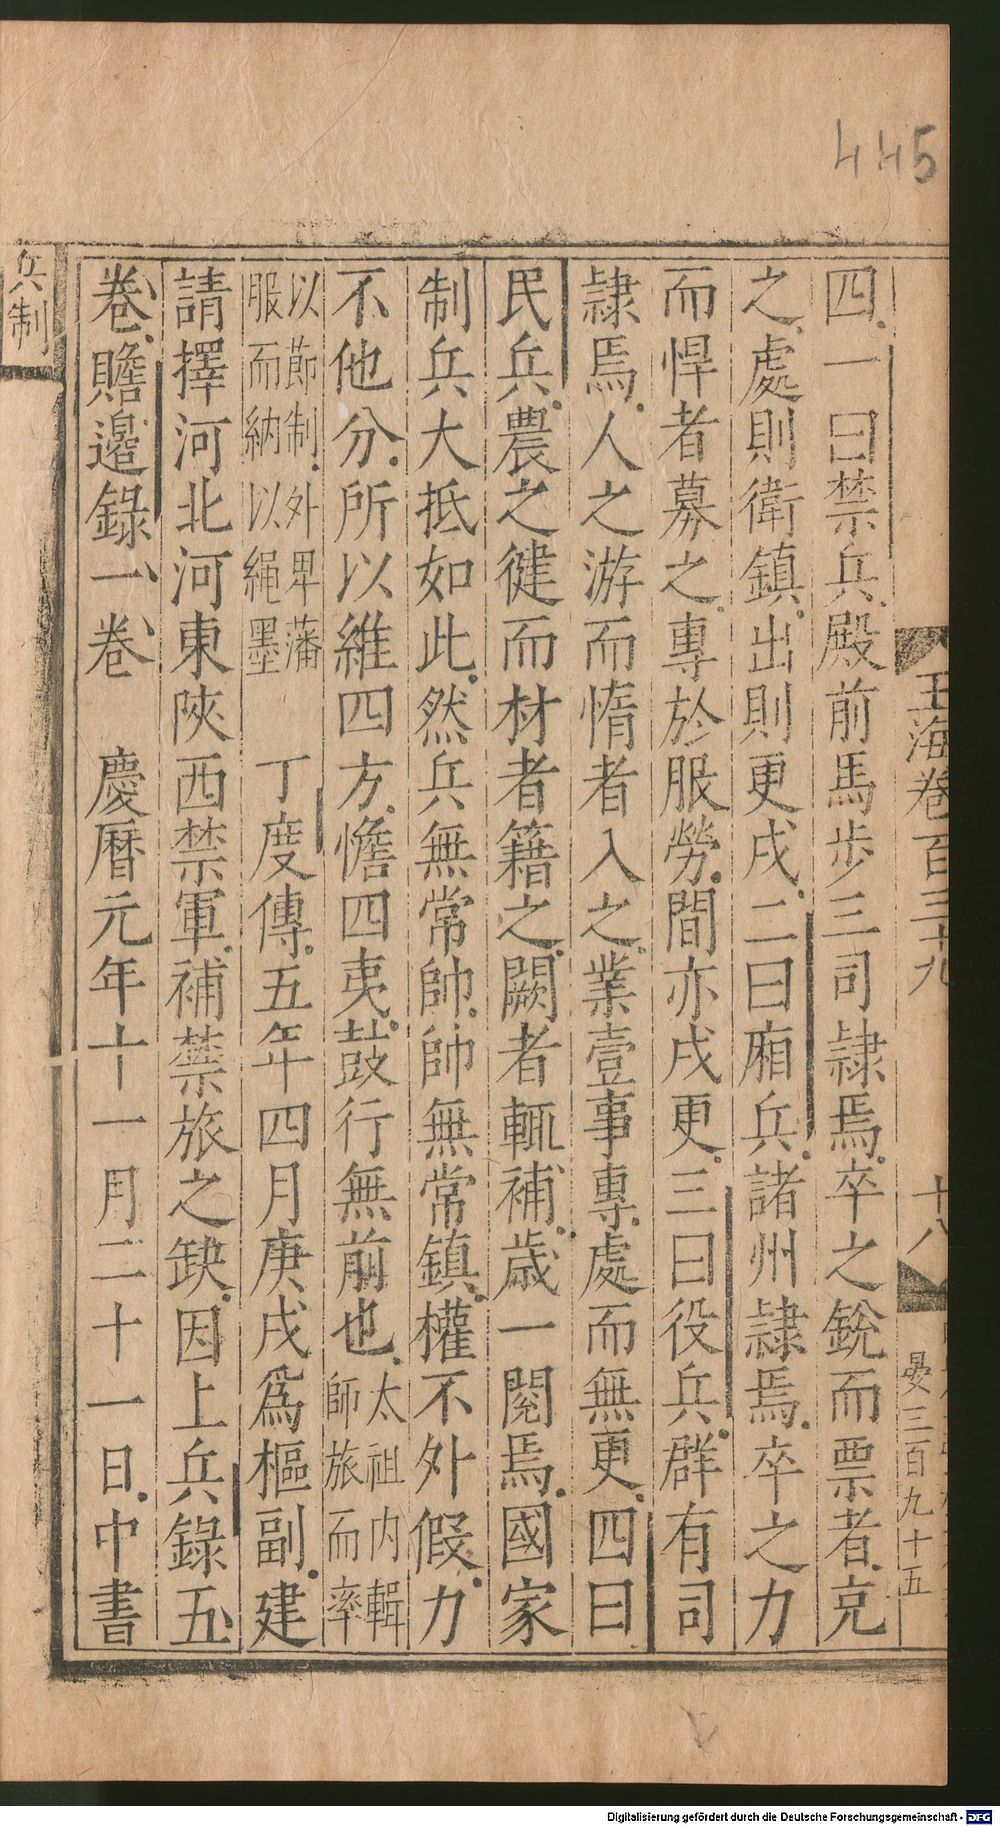 445
玉海卷百三十九
十八
晏三百九十五
四一曰禁兵殿前馬步三司隷焉卒之銳而票者充
之處則衛鎮出則更戍二曰廂兵諸州隷焉卒之力
而悍者募之專於服勞間亦戍更三曰役兵群有司
隷焉人之游而惰者入之業壹事專處而無更四曰
民兵農之徤而材者籍之闕者輒補歲一閱焉國家
制兵大抵如此然兵無常帥帥無常鎮權不外假力
不他分所以維四方憺四夷鼓行無前也太祖內輯
師旅而率
以節制外卑藩
服而納以繩墨　丁度傳五年四月庚戌爲樞副建
請擇河北河東陜西禁軍補禁旅之缺因上兵錄五
卷贍邊錄一卷　慶曆元年十一月二十一日中書
兵制
Digitalisierung gefördert durch die Deutsche Forschungsgemeinschaft - DFG